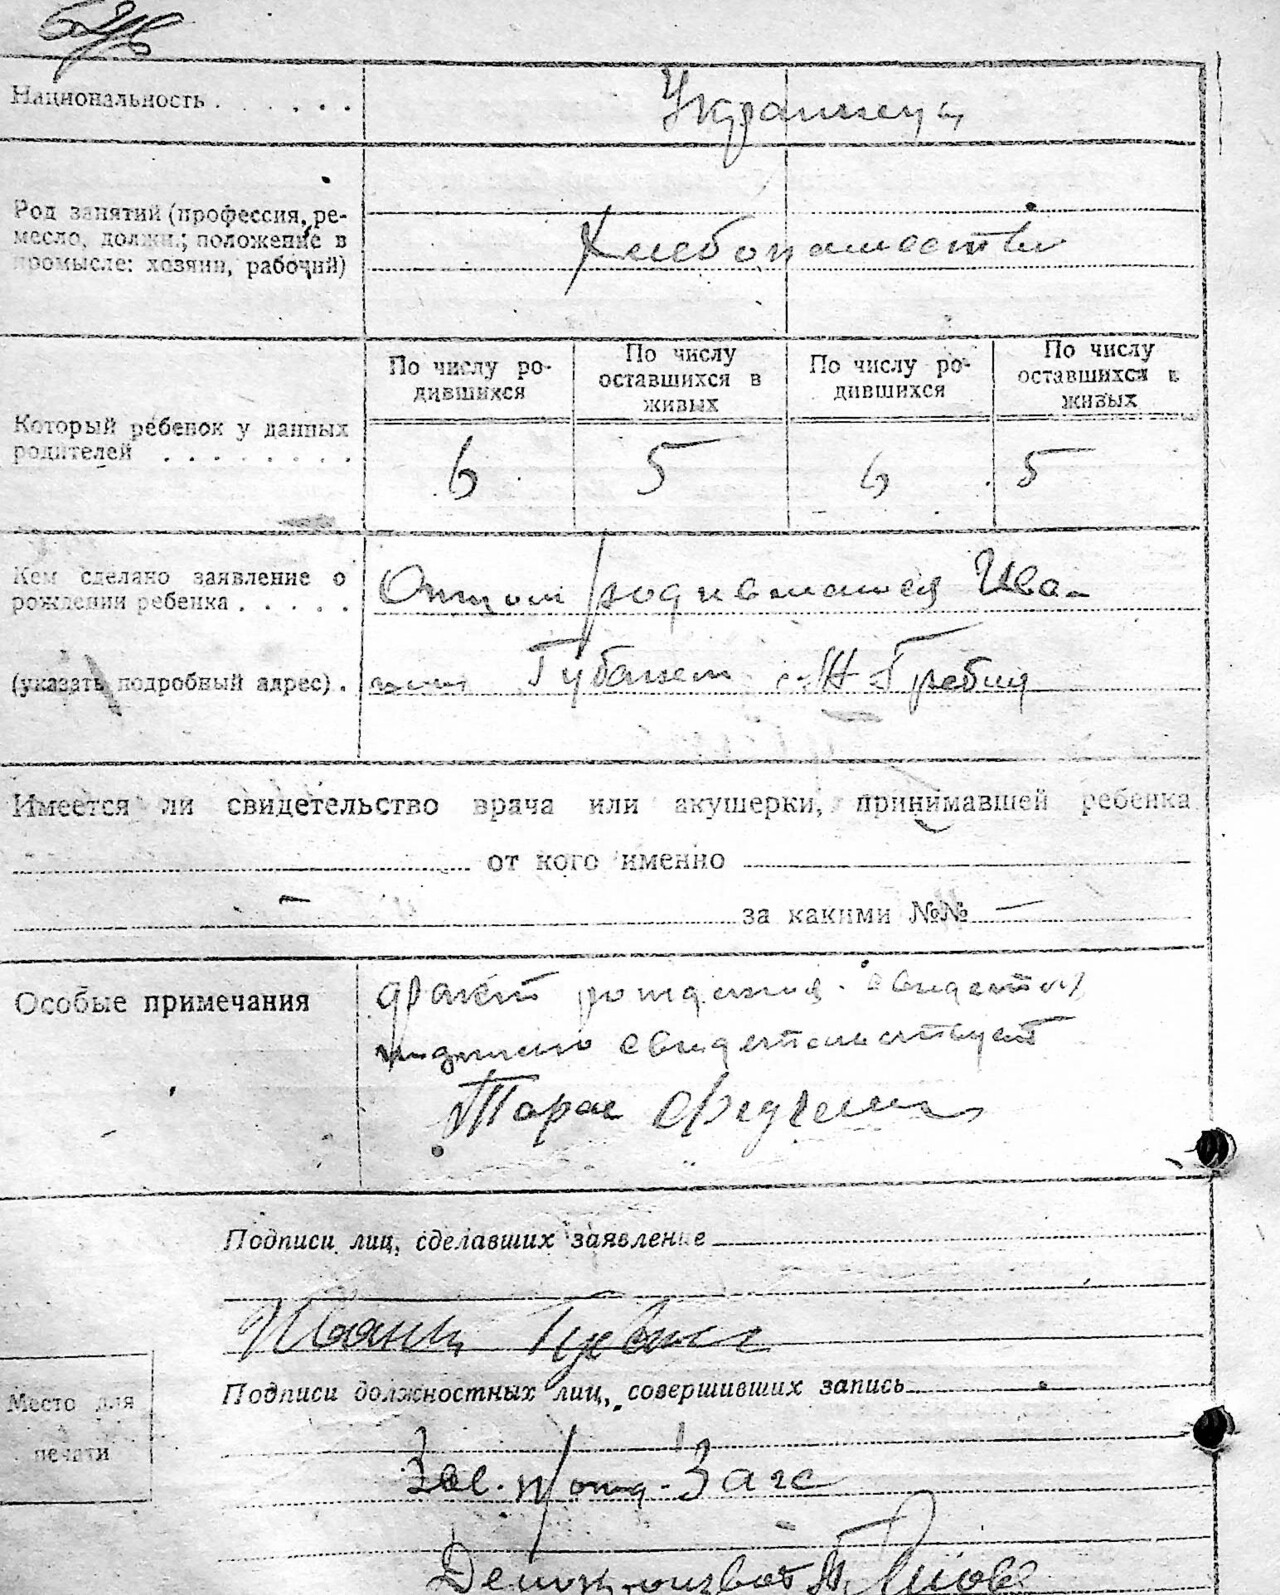 Национальность . . . . . . Украинец
Род занятий (профессия, ре-
месло, должн.; положение в
промысле: хозяин, рабочий)
Хлебопашество
По числу ро-
дившихся
По числу
оставшихся в
живых
По числу ро-
дившихся
По числу
оставшихся в
живых
Который ребенок у данных
родителей . . . . . . . .
6 5 6 5
Кем сделано заявление о
рождении ребенка . . . . .
Отцом родившагося Ива-
(указать подробный адрес) . ном Губанем с. Н-Гребля
Имеется ли свидетельство врача или акушерки, принимавшей ребенка
от кого именно
— за какими №№ —
Особые примечания
факт рождения
свидетельствует
Тарас
Подписи лиц, сделавших заявление
Подписи должностных лиц, совершивших запись
Место для
печати
Зав. п/отд. Загс